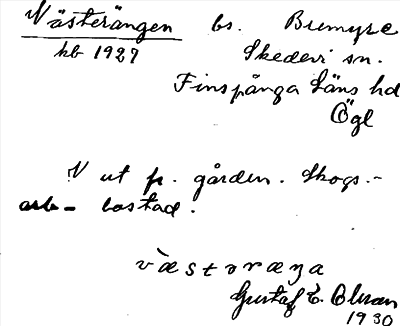 Västerängen bs. Bremyre
kb 1927 Skedevi sn.
Finspånga läns hd
Ögl
V ut fr. gården. Skogs-
arb- bostad.
Gustaf E. Olsson
1930